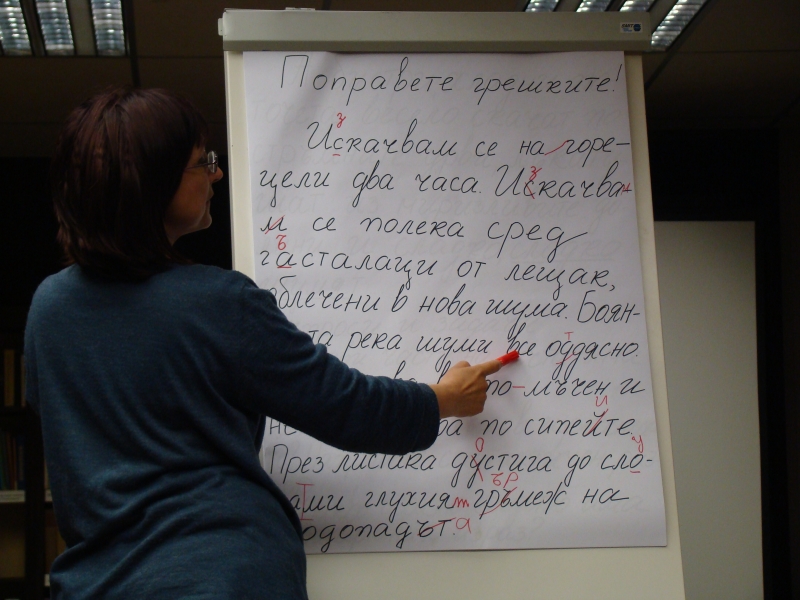 Поправете грешките!
Искачвам се на горе-
цели два часа. Искачва
м се полека сред
гасталаци от лещак,
облечени в нова шума. Боян-
та река шуми ве оддясно.
то-мъчен и
не ва по сипейте.
През листака дустига до сло-
ами глухия гръмеж на
одопадът.